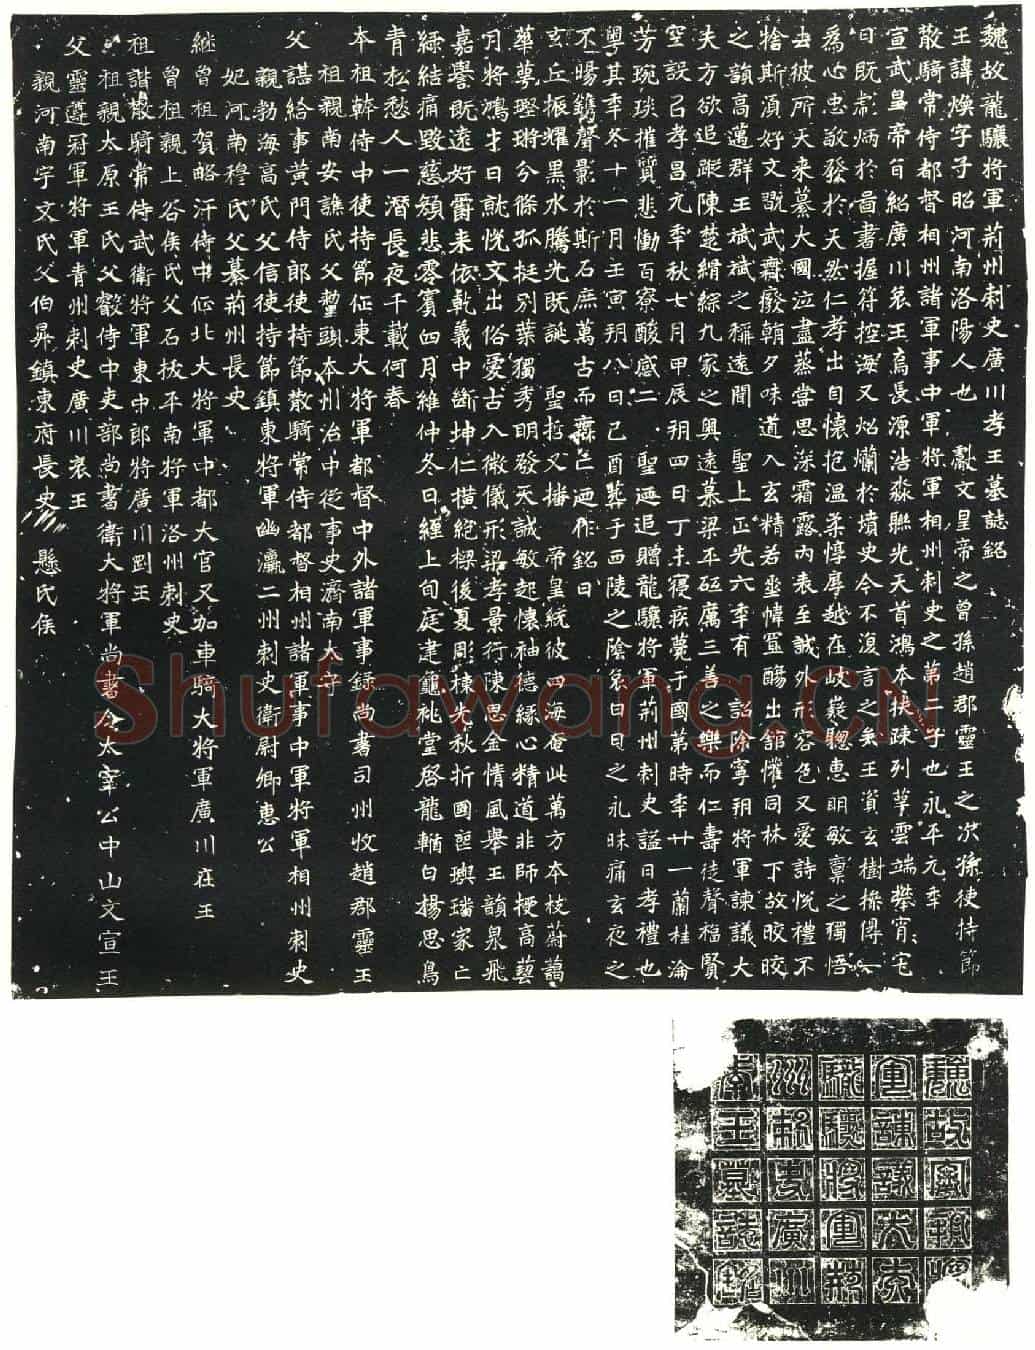 魏故龍驤將軍荊州刺史廣川孝王墓誌銘
王諱煥字子昭河南洛陽人也獻文皇帝之曾孫趙郡靈王之次孫使持節
散騎常侍都督相州諸軍事中軍將軍相州刺史之第二子也永平元年
宣武皇帝旨紹廣川哀王焉長源浩淼聯光天首鴻本扶疎列萼雲端攀宵宅
日既彪炳於啚書握符控海又炤爛於墳史今不復言之矣王資玄樹操得一
為心忠敬發於天然仁孝出自懷抱溫柔惇厚越在岐嶷聰惠明敏稟之獨悟
去彼所天來纂大國泣盡蒸嘗思深霜露內表至誠外形容色又愛詩悅禮不
捨斯須好文翫武無廢朝夕味道入玄精若垂帷置觴出館懽同林下故晈晈
之韻高邁群王斌斌之稱遠聞聖上正光六年有詔除寧朔將軍諫議大
夫方欲追蹤陳楚緝綜九家之興遠慕梁平砥厲三善之樂而仁壽徒聲福賢
空設己孝昌元年秋七月甲辰朔四日丁未寢疾薨于國第時年廿一蘭桂淪
芳琬琰摧質悲慟百寮酸感二聖迺追贈龍驤將軍荊州刺史謚曰孝禮也
粵其年冬十一月壬寅朔八日己酉葬于西陵之陰
不暘鐫聲影於斯石庶萬古而無亡迺作銘曰
玄丘振耀黑水騰光既誕聖哲又播帝皇統彼四海奄此萬方本枝蔚藹
華萼璀㻞今條孤挺別葉獨秀明發天誠敏起懷袖德緣心精道非師授高藝
月將鴻才日就恍文出俗愛古入微儀形梁孝景行陳思金情風舉玉韻泉飛
嘉譽既遠好爵來依乾義中斷坤仁橫絕樑後夏彫棟先秋折國喪璵璠家亡
綠結痛毀慈顏悲零賓四月維仲冬日經上旬庭建龜祧堂啓龍輴白揚思鳥
青松愁人一潛長夜千載何春
本祖幹侍中使持節征東大將軍都督中外諸軍事錄尚書司州牧趙郡靈王
祖親南安譙氏父𩭝頭本州治中從事史濟南太守
父諶給事黃門侍郎使持節散騎常侍都督相州諸軍事中軍將軍相州刺史
親勃海高氏父信使持節鎮東將軍幽瀛二州刺史衛尉卿惠公
妃河南穆氏父纂荊州長史
繼曾祖賀略汗侍中征北大將軍中都大官又加車騎大將軍廣川莊王
曾祖親上谷侯氏父石拔平南將軍洛州刺史
祖諧散騎常侍武衛將軍東中郎將廣川剛王
祖親太原王氏父叡侍中吏部尚書衛大將軍尚書令太宰公中山文宣王
父靈遵冠軍將軍青州刺史廣川哀王
親河南宇文氏父伯昇鎮東府長史懸氏侯
魏故寧朔將
軍諫議大夫
龍驤將軍荊
州刺史廣川
孝王墓誌銘
Shufawang.CN